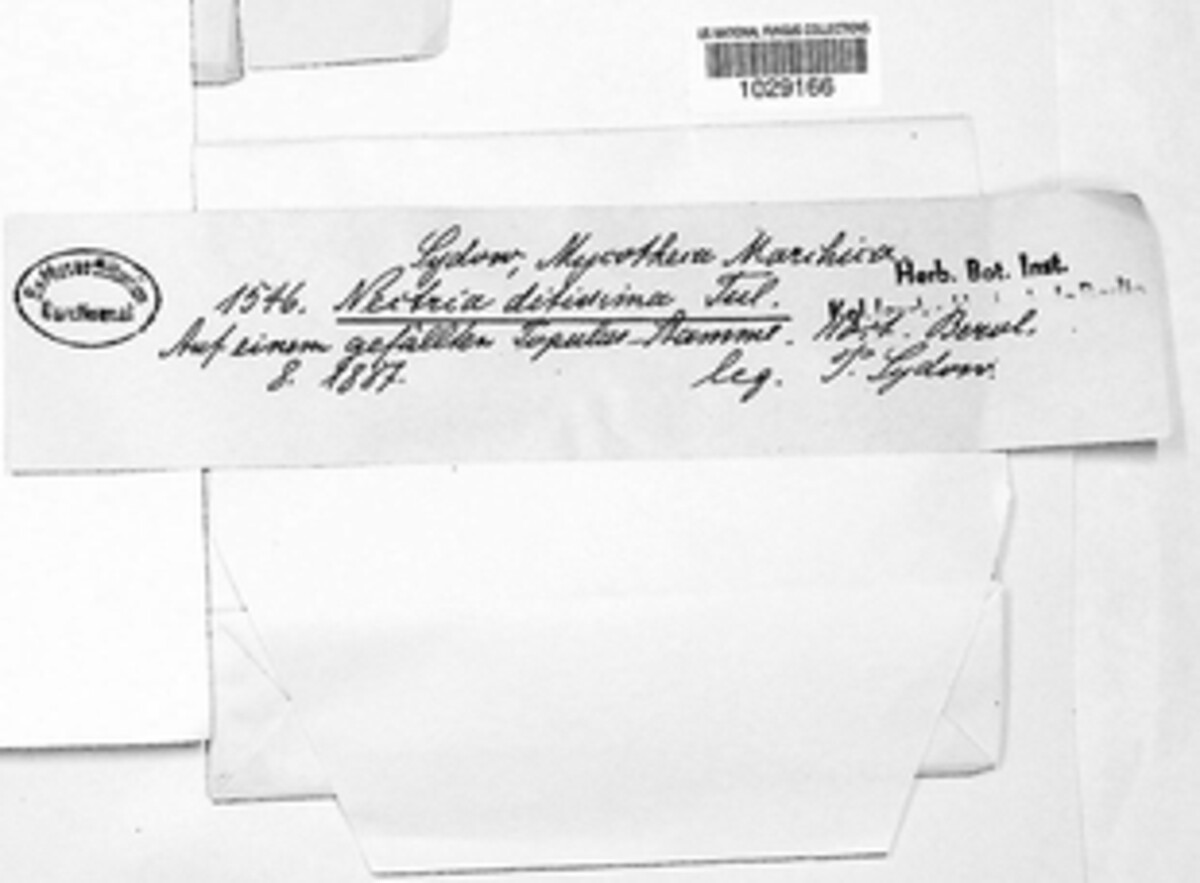 US NATIONAL FUNGUS COLLECTIONS
1029166
Sydow, Mycotheca Marchica
Herb. Bot. Inst.
1546. Nectria ditissima Tul.
Auf einem gefällten Populus-Stamme.
8. 1887. leg. P. Sydow.